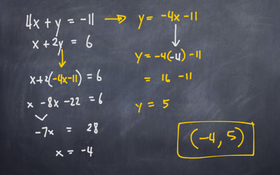 4x + y = -11 → y = -4x - 11
x + 2y = 6
y = -4(-4) - 11
x + 2(-4x - 11) = 6
= 16 - 11
x - 8x - 22 = 6
y = 5
-7x = 28
(-4, 5)
x = -4